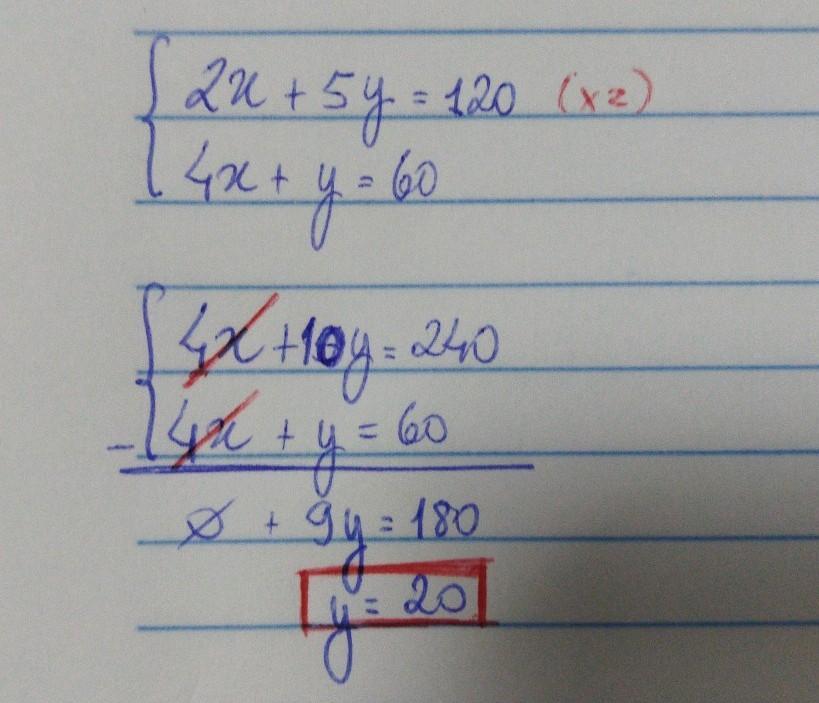 2x + 5y = 120 (x2)
4x + y = 60
4x + 10y = 240
- 4x + y = 60
0 + 9y = 180
y = 20